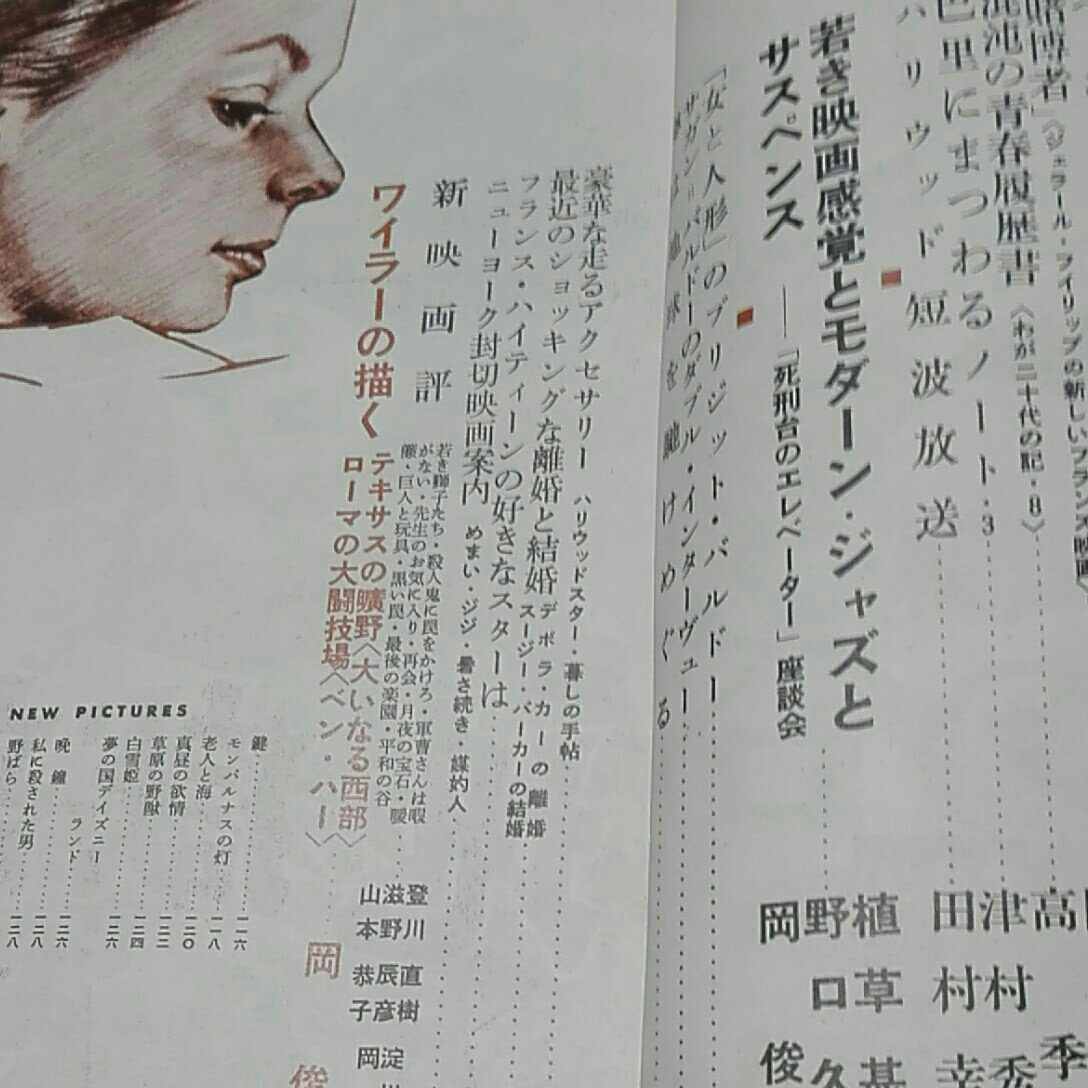 賭博者」〈ジェラール・フィリップの新しいフランス映画〉
混沌の青春履歴書〈わが二十代の記・8〉
巴里にまつわるノート・3
ハリウッド短波放送
若き映画感覚とモダーン・ジャズと
サスペンス——「死刑台のエレベーター」座談会
「女と人形」のブリジット・バルドー
サガン=バルドーのダブル・インターヴュー
地球を駈けめぐる
高
季
津村
秀
田村
幸
植草
甚
野口
久
岡
俊
豪華な走るアクセサリー ハリウッドスター・暮しの手帖
最近のショッキングな離婚と結婚 デボラ・カーの離婚
スージー・パーカーの結婚
フランス・ハイティーンの好きなスターは
ニューヨーク封切映画案内 めまい・ジジ・暑さ続き・媒妁人
新映画評
若き獅子たち・殺人鬼に罠をかけろ・軍曹さんは暇
がない・先生のお気に入り・再会・月夜の宝石・暖
簾・巨人と玩具・黒い罠・最後の楽園・平和の谷
登川直樹
滋野辰彦
山本恭子
淀川
岡
ワイラーの描く
テキサスの曠野〈大いなる西部〉
ローマの大闘技場〈ベン・ハー〉
岡
俊
NEW PICTURES
鍵
モンパルナスの灯 一一六
老人と海 一一八
真昼の欲情 一二〇
草原の野獣 一二二
白雪姫 一二四
夢の国デイズニーランド 一二六
晩鐘 一二六
私に殺された男 一二八
野ばら 一二八